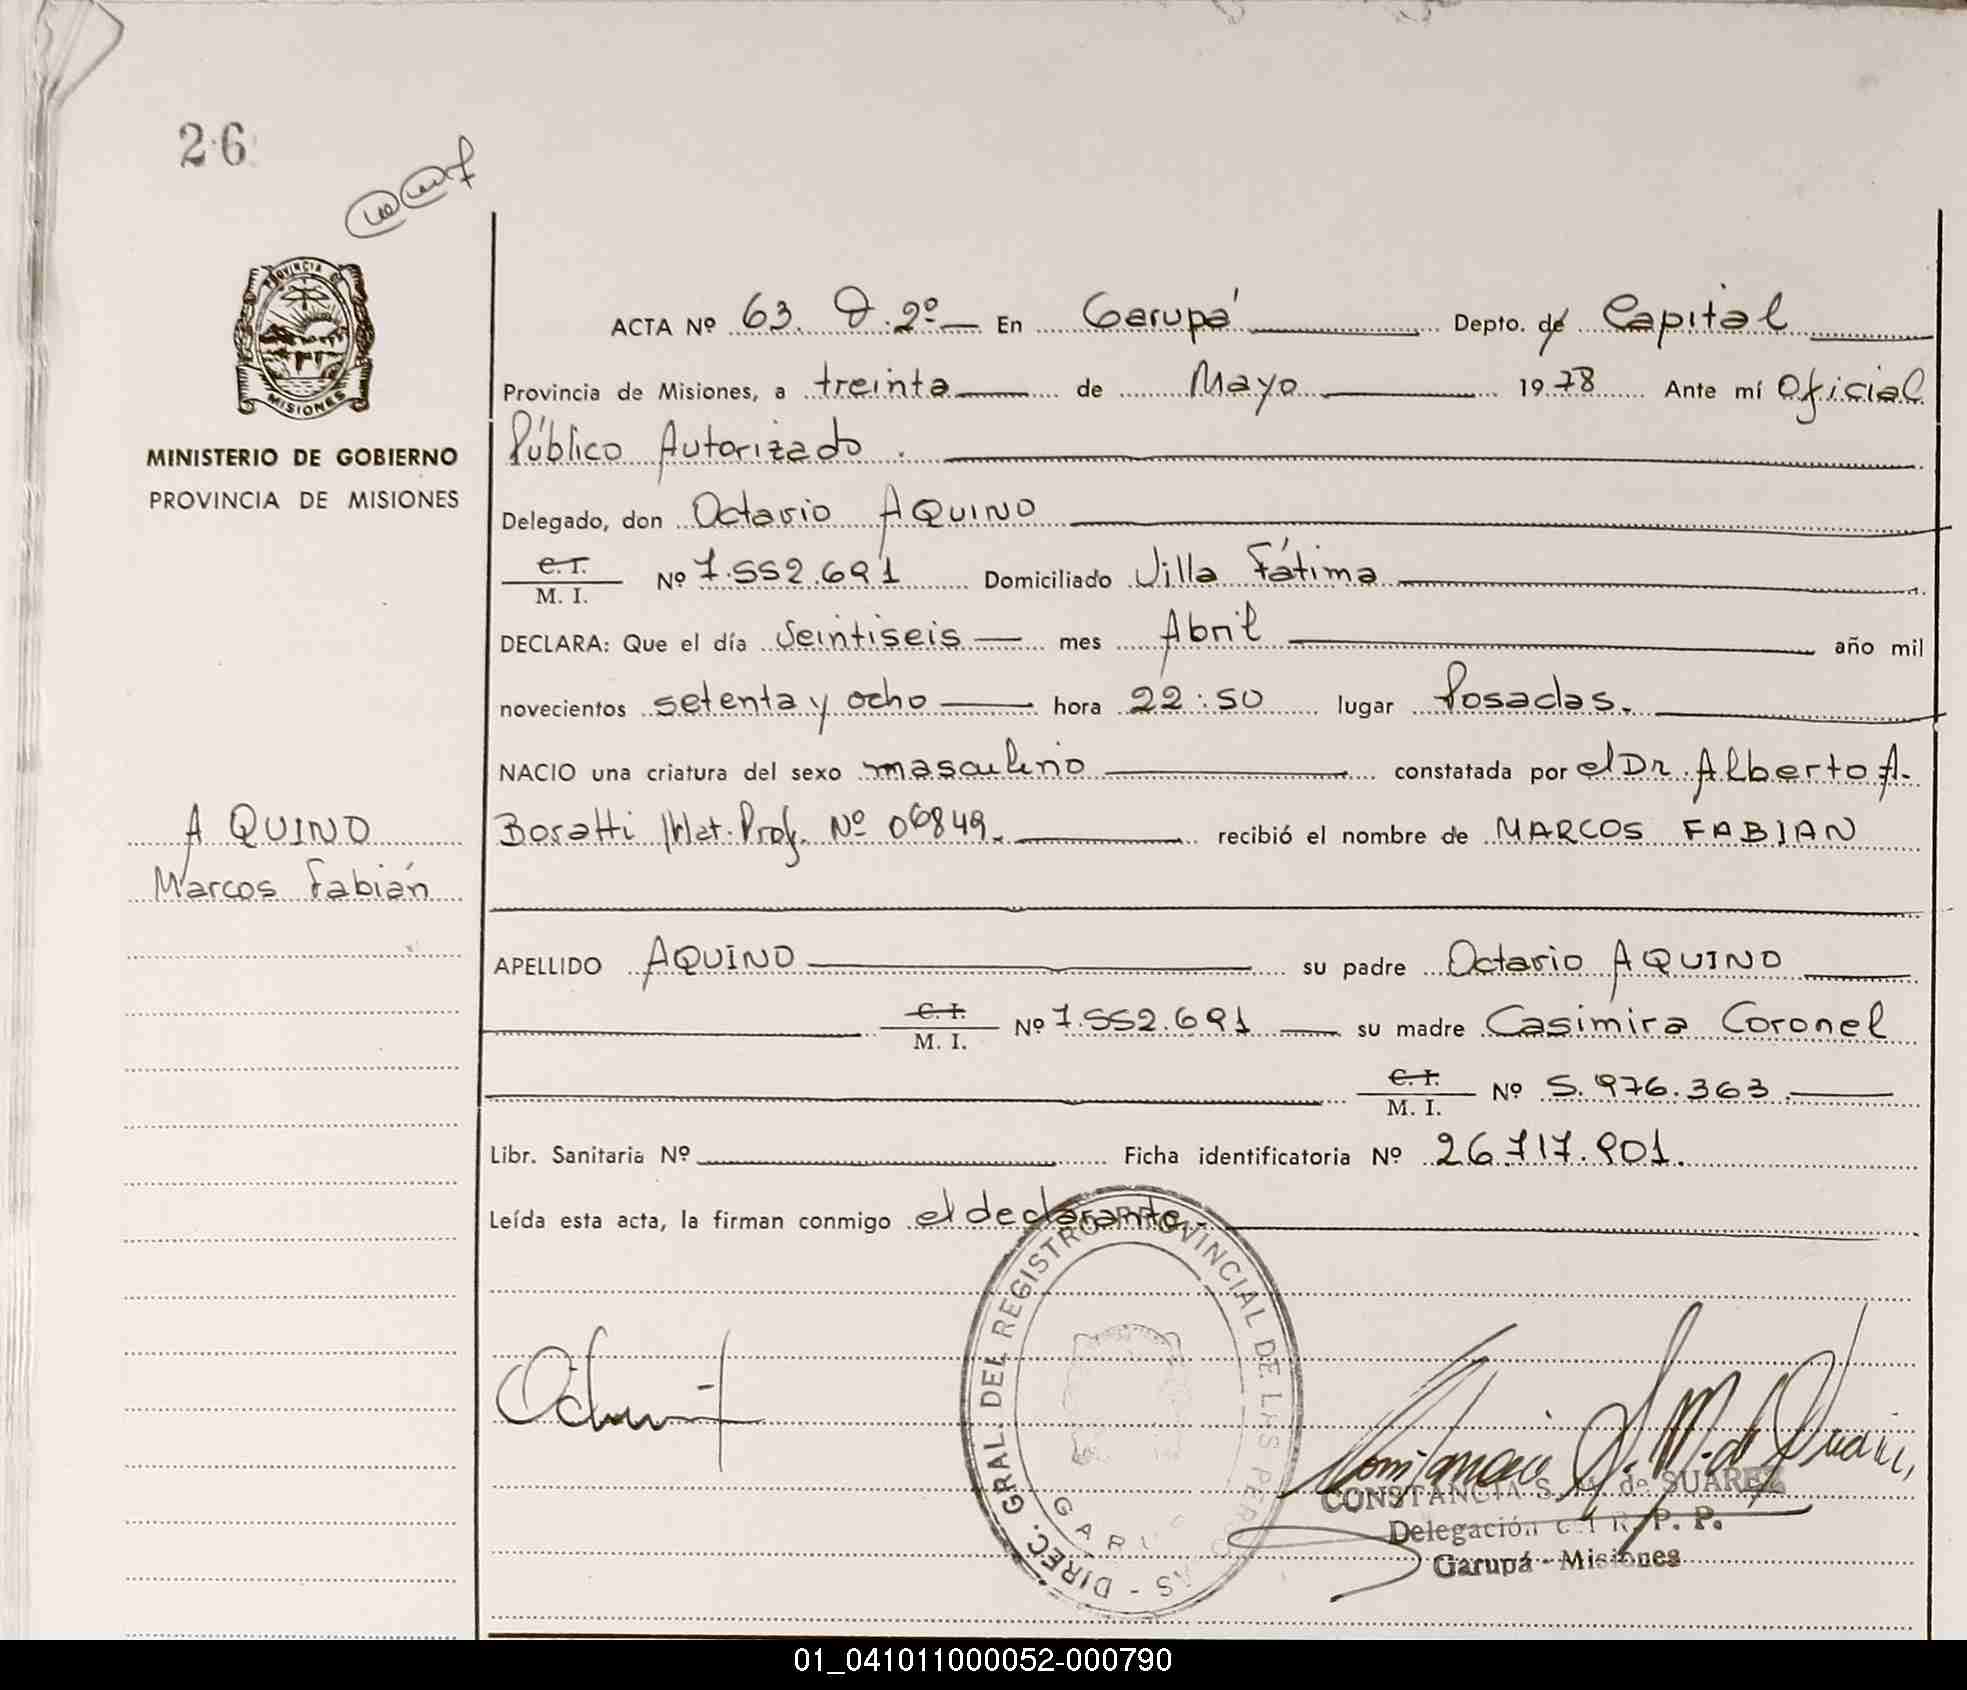 26
PROVINCIA DE
MISIONES
MINISTERIO DE GOBIERNO
PROVINCIA DE MISIONES
AQUINO
Marcos Fabián
ACTA Nº 63 D.2º En Garupá Depto. de Capital
Provincia de Misiones, a treinta de Mayo 1978 Ante mí Oficial
Público Autorizado.
Delegado, don Octavio AQUINO
C.I.
M. I. Nº 7.552.691 Domiciliado Villa Fátima
DECLARA: Que el día veintiseis mes Abril año mil
novecientos setenta y ocho hora 22:50 lugar Posadas.
NACIO una criatura del sexo masculino constatada por el Dr. Alberto A.
Bosatti Mat. Prof. Nº 06849. recibió el nombre de MARCOS FABIAN
APELLIDO AQUINO su padre Octavio AQUINO
C.I.
M. I. Nº 7.552.691 su madre Casimira Coronel
C.I.
M. I. Nº 5.976.363
Libr. Sanitaria Nº Ficha identificatoria Nº 26.717.901.
Leída esta acta, la firman conmigo el declarante.-
DIREC. GRAL. DEL REGISTRO PROVINCIAL DE LAS PERSONAS -
CONSTANCIA S. M. de SUAREZ
Delegación del R. P. P.
Garupá - Misiones
01_041011000052-000790